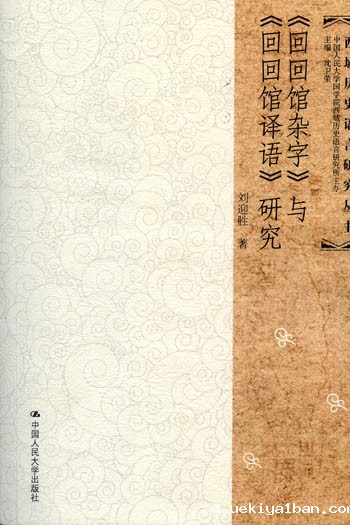 【西域历史语言研究丛书】
中国人民大学国学院西域历史语言研究所主办
主编 沈卫荣
《回回馆杂字》与
《回回馆译语》研究
刘迎胜 著
中国人民大学出版社